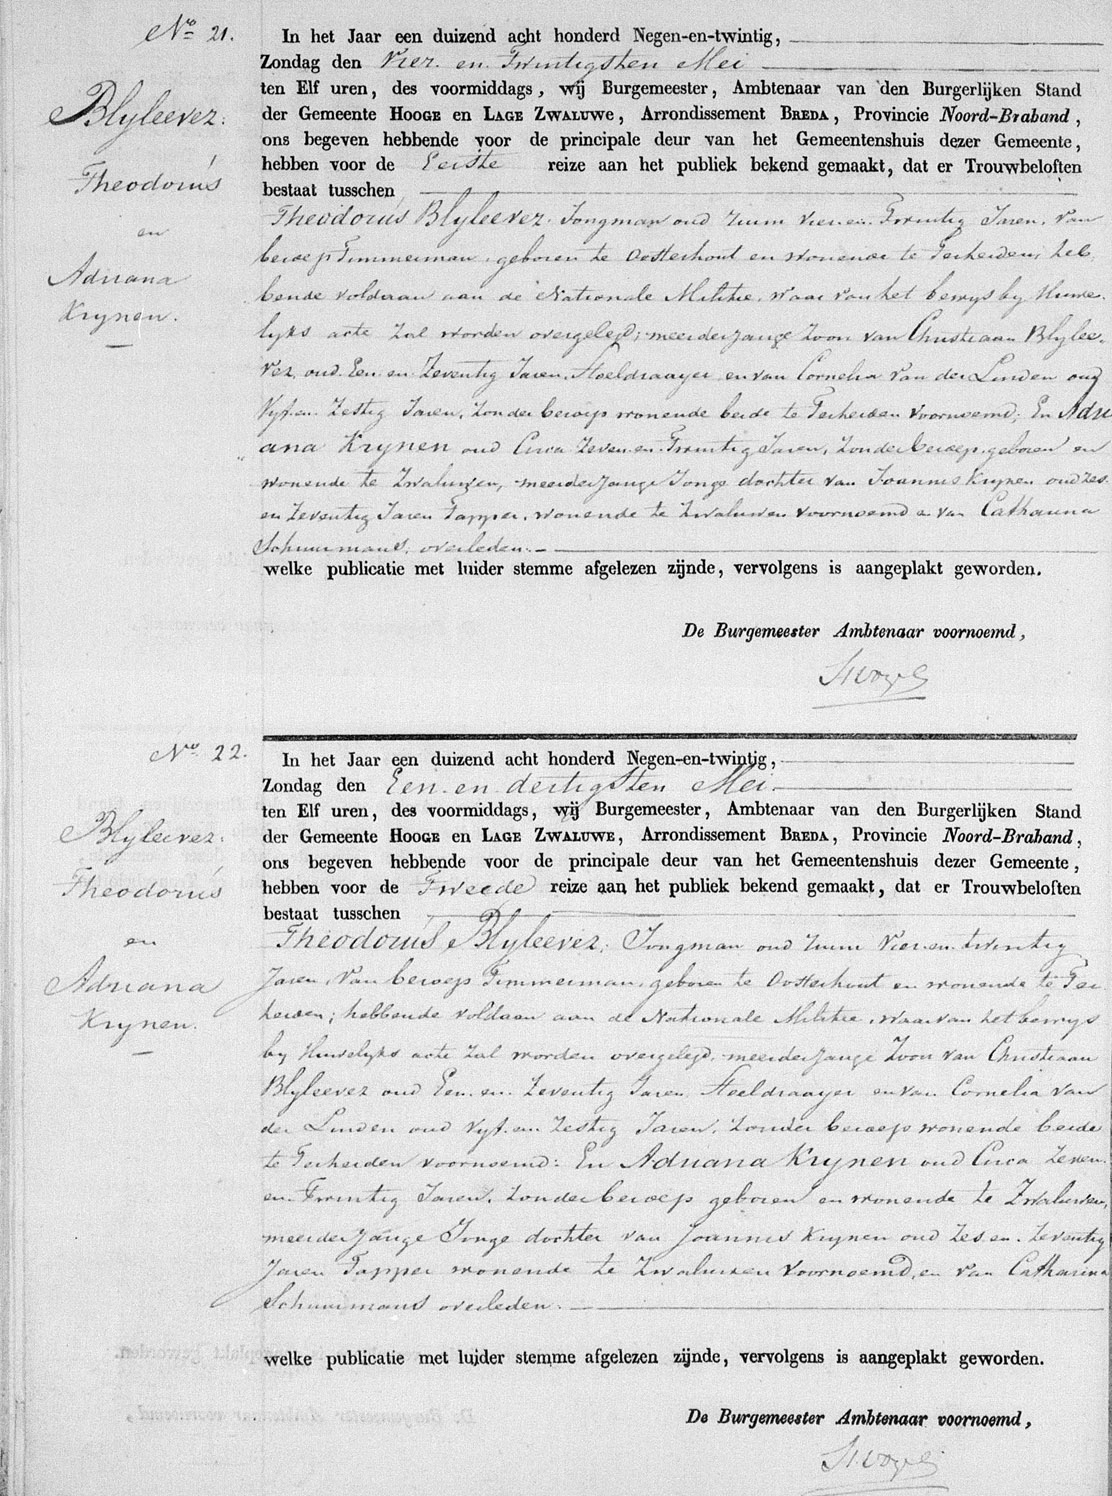 No 21.
In het Jaar een duizend acht honderd Negen-en-twintig,
Zondag den Vier en Twintigsten Mei
ten Elf uren, des voormiddags, wij Burgemeester, Ambtenaar van den Burgerlijken Stand
der Gemeente HOOGE en LAGE ZWALUWE, Arrondissement BREDA, Provincie Noord-Braband,
ons begeven hebbende voor de principale deur van het Gemeentenshuis dezer Gemeente,
hebben voor de Eerste reize aan het publiek bekend gemaakt, dat er Trouwbeloften
bestaat tusschen
Blyleevez:
Theodorus
en
Adriana
Krynen.
Theodorus Blyleevez. Jongman oud ruim vier en Twintig Jaren, van
beroep Timmerman, geboren te Oosterhout en wonende te Terheiden, heb
bende voldaan aan de Nationale Militie, waar van het bewys by Huwe-
lyks acte zal worden overgelegd; meerderjange Zoon van Christiaan Blylee-
vez oud Een en Zeventig Jaren, Stoeldraayer en van Cornelia van der Linden oud
Vyf en Zestig Jaren, zonder beroep wonende beide te Terheiden voornoemd; En Adri
ana Krynen oud Circa Zeven en Twintig Jaren, zonder beroep, geboren en
wonende te Zwaluwen, meerderjange Jonge dochter van Joannes Krynen oud Zes
en Zeventig Jaren Tapper, wonende te Zwaluwen voornoemd en van Catharina
Schuurmans, overleden.
welke publicatie met luider stemme afgelezen zijnde, vervolgens is aangeplakt geworden.
De Burgemeester Ambtenaar voornoemd,
No 22.
In het Jaar een duizend acht honderd Negen-en-twintig,
Zondag den Een en dertigsten Mei
ten Elf uren, des voormiddags, wij Burgemeester, Ambtenaar van den Burgerlijken Stand
der Gemeente HOOGE en LAGE ZWALUWE, Arrondissement BREDA, Provincie Noord-Braband,
ons begeven hebbende voor de principale deur van het Gemeentenshuis dezer Gemeente,
hebben voor de Tweede reize aan het publiek bekend gemaakt, dat er Trouwbeloften
bestaat tusschen
Blyleevez:
Theodorus
en
Adriana
Krynen.
Theodorus Blyleevez, Jongman oud ruim Vier en twintig
Jaren, van beroep Timmerman, geboren te Oosterhout en wonende te Ter
heiden; hebbende voldaan aan de Nationale Militie, waarvan het bewys
by Huwelyks acte zal worden overgelegd, meerderjange Zoon van Christiaan
Blyleevez oud Een en Zeventig Jaren, Stoeldraayer en van Cornelia van
der Linden oud Vyf en Zestig Jaren, zonder beroep wonende beide
te Terheiden voornoemd: En Adriana Krynen oud Circa Zeven
en Twintig Jaren, zonder beroep geboren en wonende te Zwaluwen,
meerderjange Jonge dochter van Joannes Krynen oud Zes en Zeventig
Jaren Tapper wonende te Zwaluwen voornoemd, en van Catharina
Schuurmans overleden.
welke publicatie met luider stemme afgelezen zijnde, vervolgens is aangeplakt geworden.
De Burgemeester Ambtenaar voornoemd,